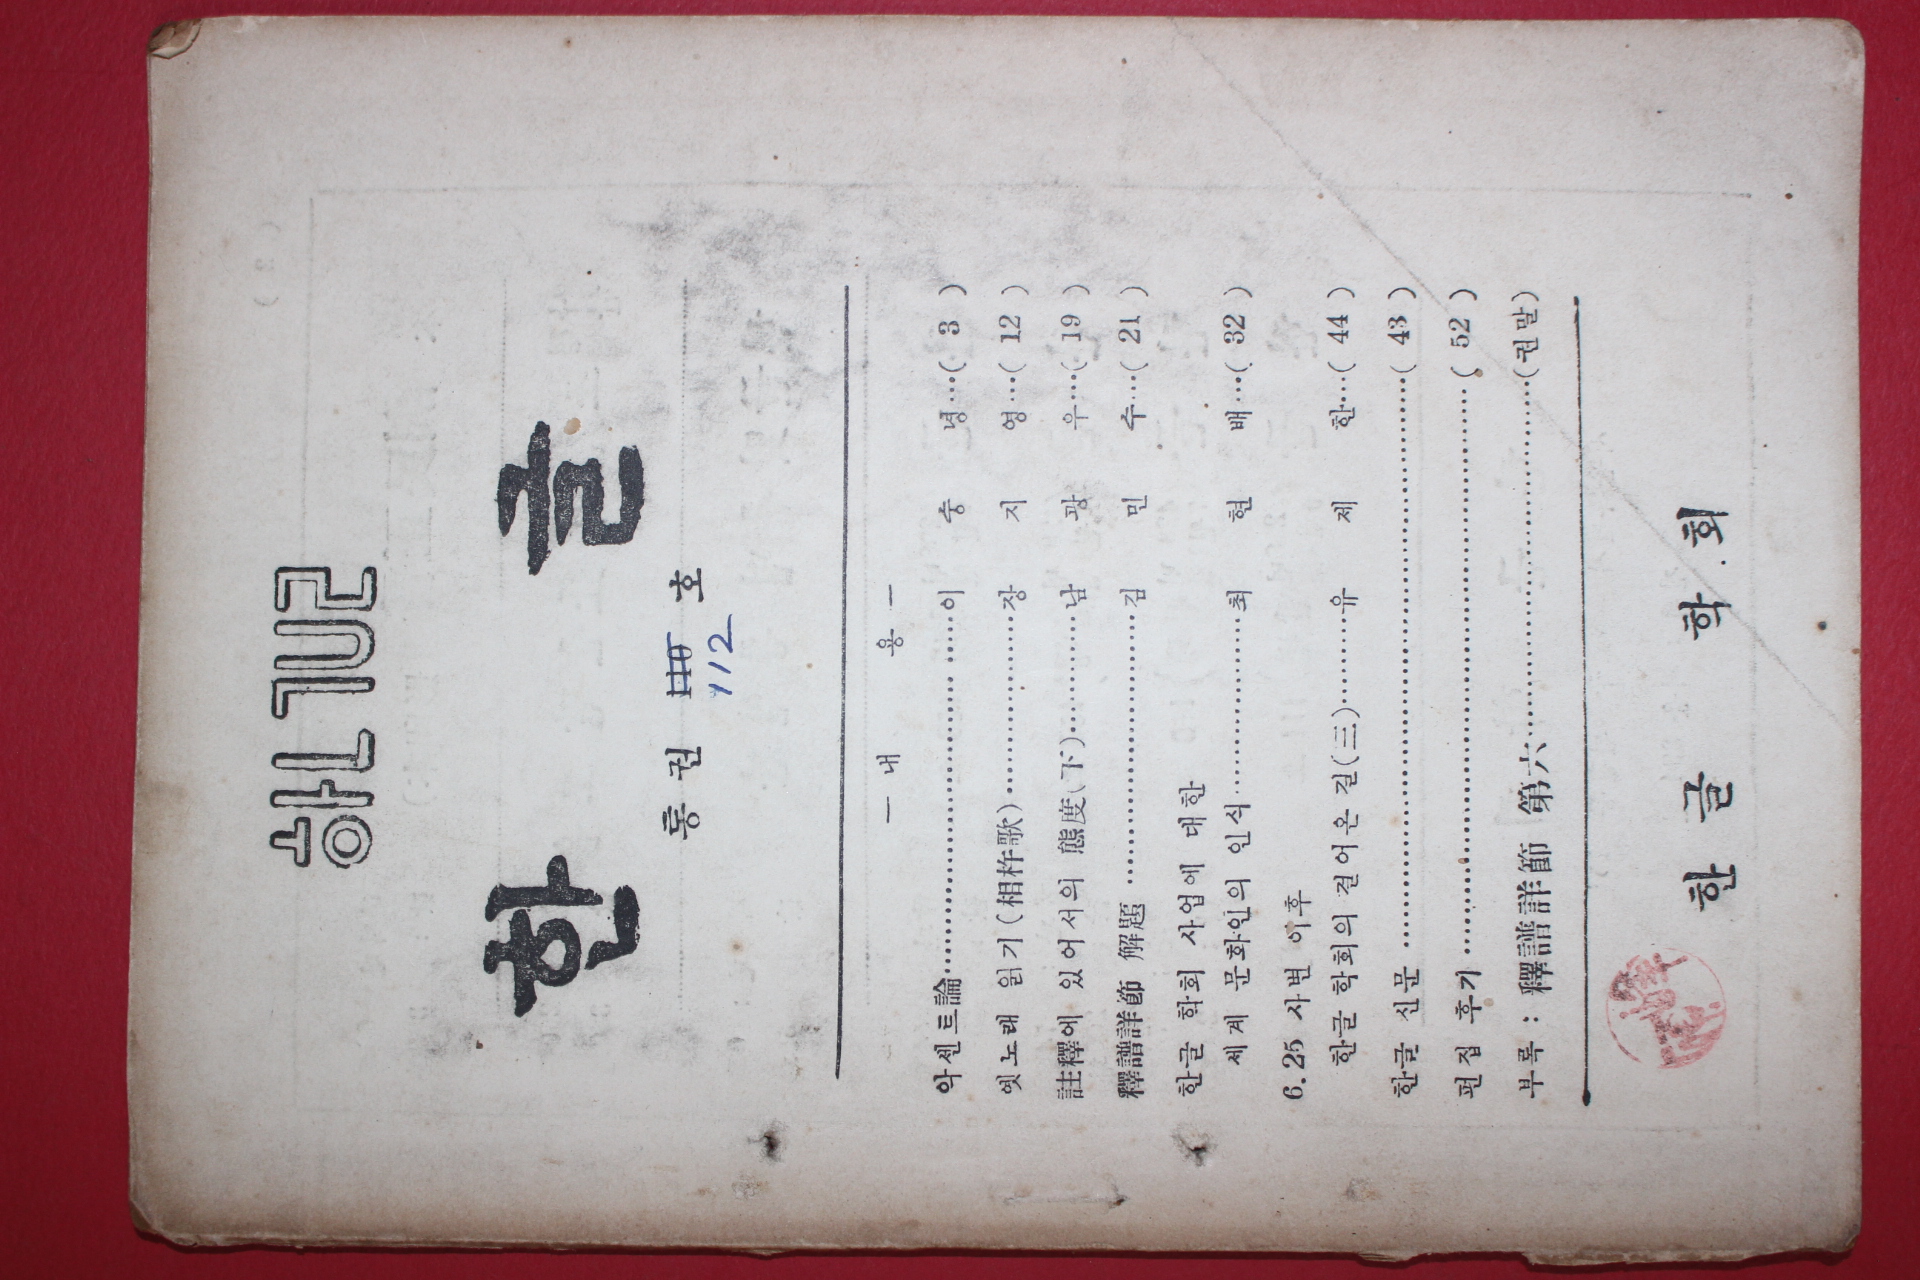 ㅎㅏㄴㄱㅡㄹ
한글
통권 호
112
— 내 용 —
악센트論…………이 숭 녕…( 3 )
옛노래 읽기(相杵歌)…………장 지 영…( 12 )
註釋에 있어서의 態度(下)…………남 광 우…( 19 )
釋譜詳節 解題…………김 민 수…( 21 )
한글 학회 사업에 대한
세계 문화인의 인식…………최 현 배…( 32 )
6.25 사변 이후
한글 학회의 걸어온 길(三)…………유 제 한…( 44 )
한글 신문…………( 43 )
편집 후기…………( 52 )
부록: 釋譜詳節 第六…………(권말)
한글 학회